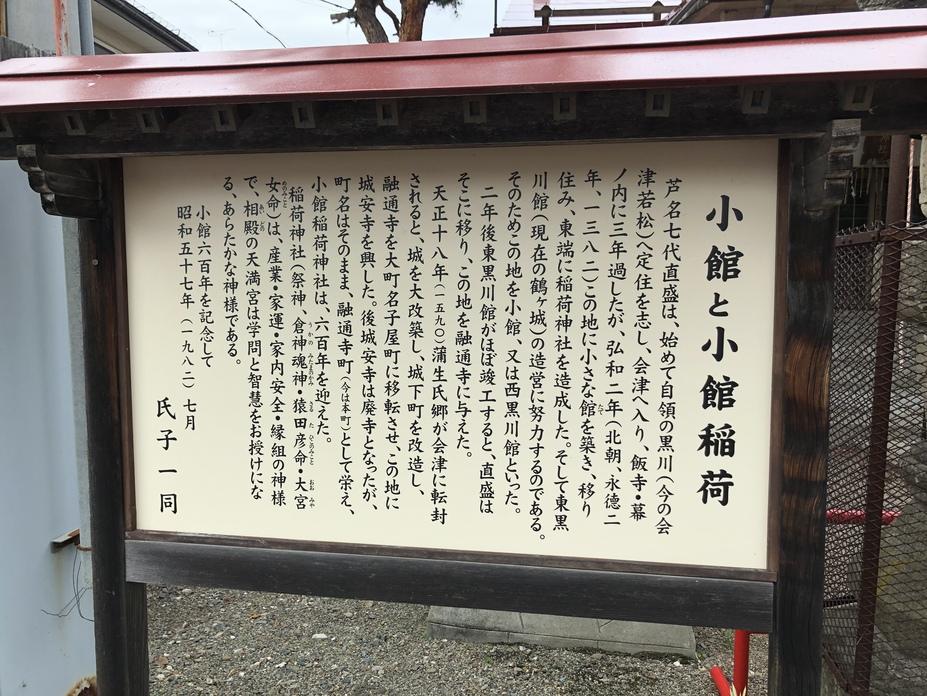 小館と小館稲荷
芦名七代直盛は、始めて自領の黒川（今の会
津若松）へ定住を志し、会津へ入り、飯寺・幕
ノ内に三年過したが、弘和二年（北朝、永德二
年、一三八二）この地に小さな館を築き、移り
住み、東端に稲荷神社を造成した。そして東黒
川館（現在の鶴ヶ城）の造営に努力するのである。
そのためこの地を小館、又は西黒川館といった。
二年後東黒川館がほぼ竣工すると、直盛は
そこに移り、この地を融通寺に与えた。
天正十八年（一五九〇）蒲生氏郷が会津に転封
されると、城を大改築し、城下町を改造し、
融通寺を大町名子屋町に移転させ、この地に
城安寺を興した。後城安寺は廃寺となったが、
町名はそのまま、融通寺町（今は本町）として栄え、
小館稲荷神社は、六百年を迎えた。
稲荷神社（祭神、倉神魂神・猿田彦命・大宮
女命）は、産業・家運・家内安全・縁組の神様
で、相殿の天満宮は学問と智慧をお授けにな
る、あらたかな神様である。
小館六百年を記念して
昭和五十七年（一九八二）七月
氏子一同